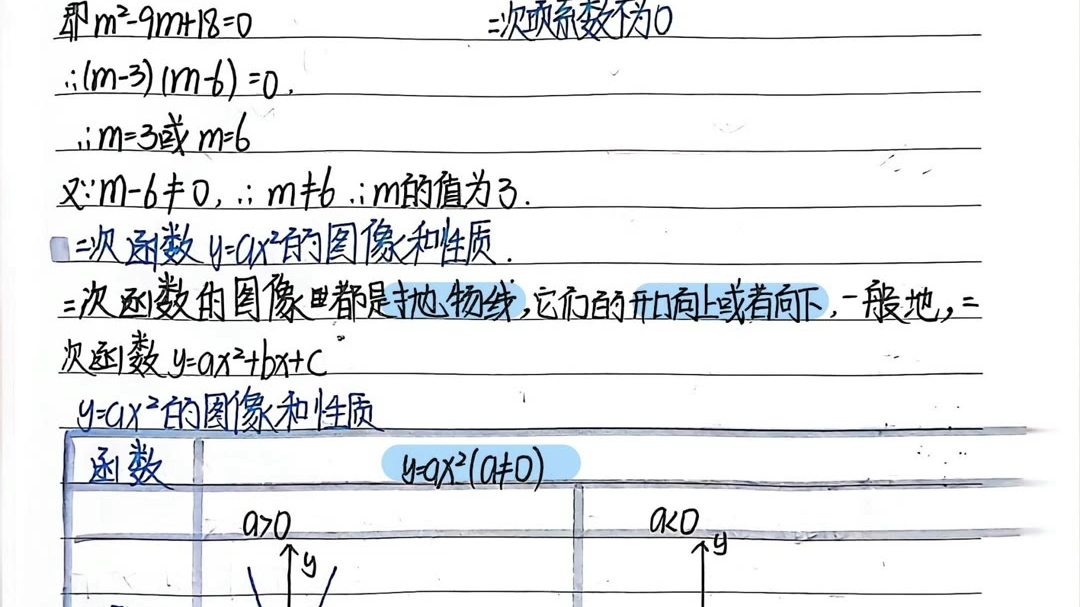 即m²-9m+18=0 二次项系数不为0
∴(m-3)(m-6)=0.
∴m=3或m=6
又∵m-6≠0,∴m≠6∴m的值为3.
二次函数y=ax²的图像和性质.
二次函数的图像都是抛物线,它们的开口向上或者向下.一般地,二
次函数y=ax²+bx+c
y=ax²的图像和性质
函数 y=ax²(a≠0)
a>0 a<0
y y